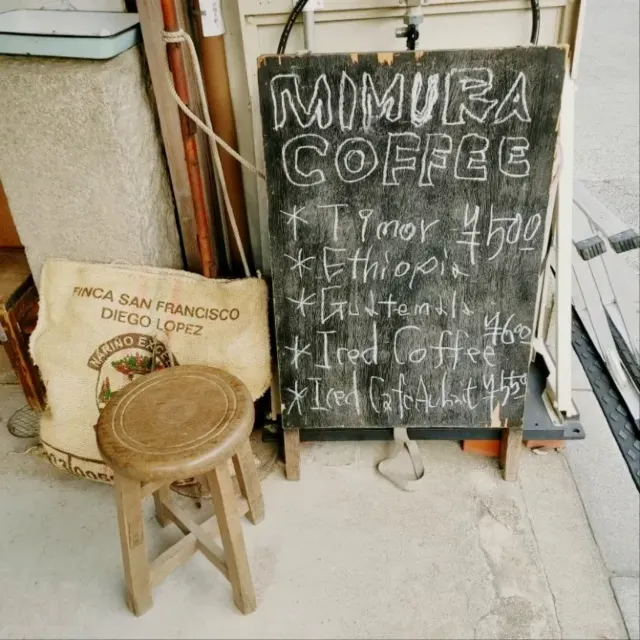 MIMURA
COFFEE
* Timor ¥500
* Ethiopia
* Guatemala
* Iced Coffee ¥460
* Iced Cafe Au Lait ¥
FINCA SAN FRANCISCO
DIEGO LOPEZ